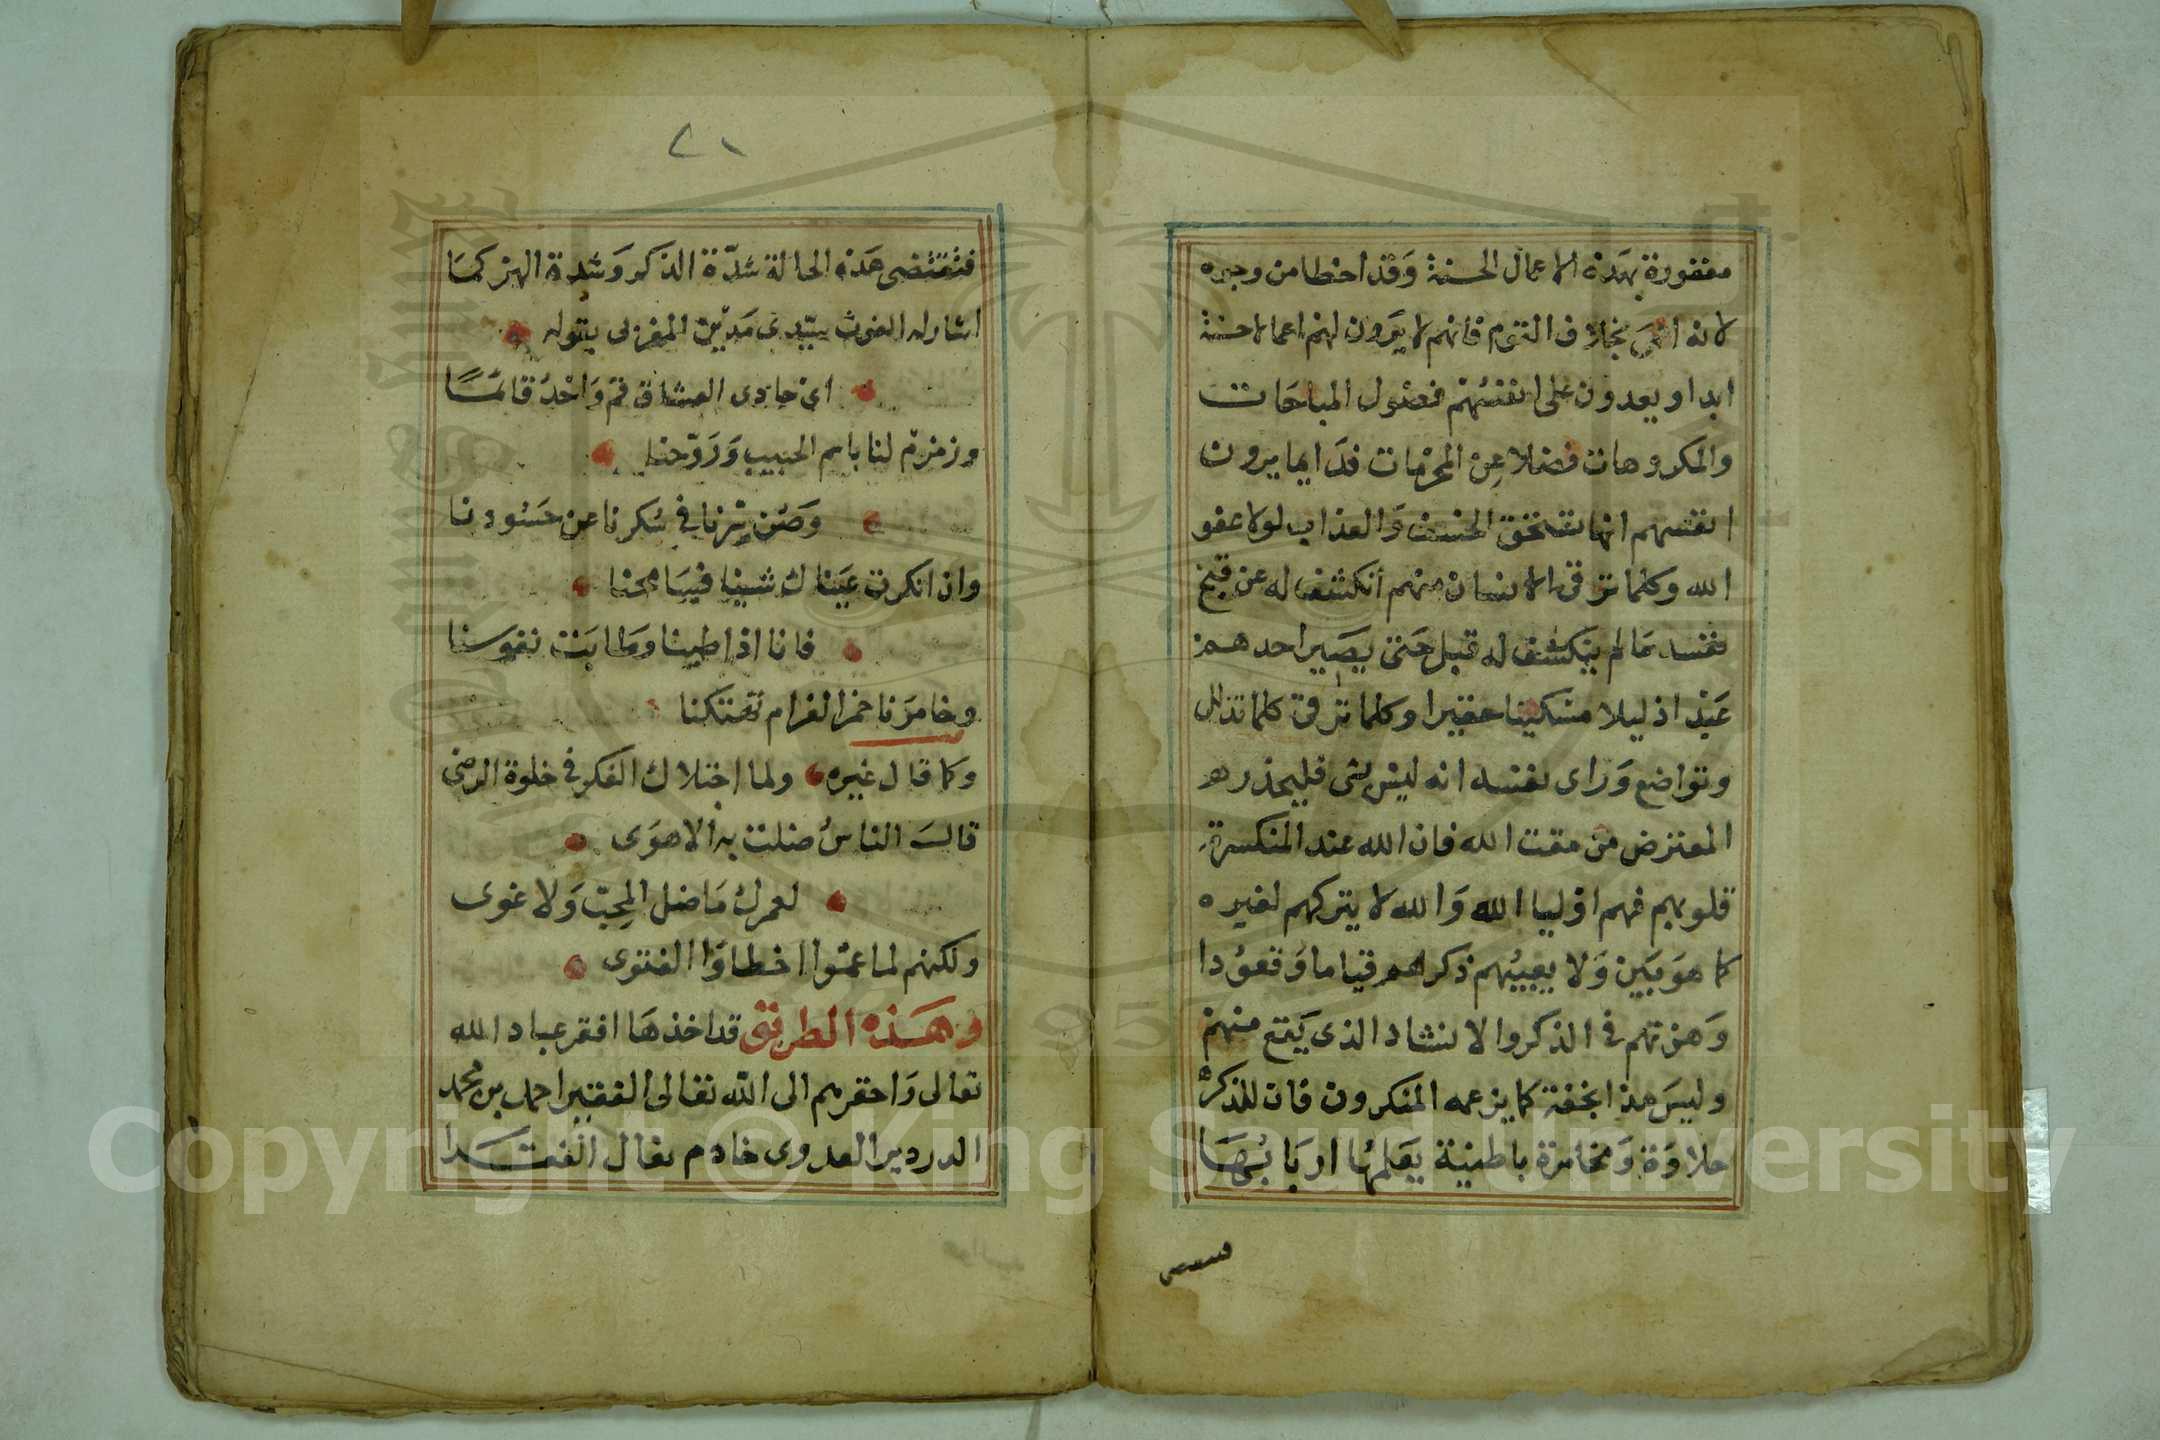 مغفورة بهذه الاعمال الحسنة وقد اخطا من وجوه
لانه بخلاف القوم فانهم لا يرون لهم اعمالا حسنة
ابدا ويعدون على انفسهم فضول المباحات
والمكروهات فضلا عن المحرمات فدايما يرون
انفسهم انها تستحق الخسف والعذاب لولا عفو
الله وكلما ترقى الانسان منهم انكشف له عن قبح
نفسه مالم ينكشف له قبل حتى يصير احدهم
عبدا ذليلا مسكينا حقيرا وكلما ترقى كلما تذلل
وتواضع وراى نفسه انه ليس بشى فليحذر
المعترض من مقت الله فان الله عند المنكسرة
قلوبهم فهم اوليا الله والله لا يتركهم لغيره
كما هو بين ولا يعيبهم ذكرهم قياما وقعودا
وهزتهم في الذكر والانشاد الذى يقع منهم
وليس هذا بخفة كما يزعمه المنكرون فان للذكر
حلاوة ومخامرة باطنية يعلمها اربابها
فتقتضى
٢١
فتقتضى هذه الحالة شدة الذكر وشدة الهز كما
اشار له الغوث سيدى مدين المغربى بقوله
اى حادى العشاق قم واحد قائما
وزمزم لنا باسم الحبيب وروحنا
وصن سرنا في سكرنا عن حسودنا
وان انكرت عيناك شيئا فسامحنا
فانا اذا طبنا وطابت نفوسنا
وخامرنا خمر الغرام تهتكنا
وكما قال غيره ولما اجتلاك الفكر في خلوة الرضى
قالت الناس ضلت به الاهوى
لعمرك ما ضل المحب ولا غوى
ولكنهم لما عموا اخطاوا الفتوى
وهذه الطريق قد اخذها افقر عباد الله
تعالى واحقرهم الى الله تعالى الفقير احمد بن محمد
الدردير العدوى خادم نعال الفقرا
Copyright © King Saud University
King Saud University
1957